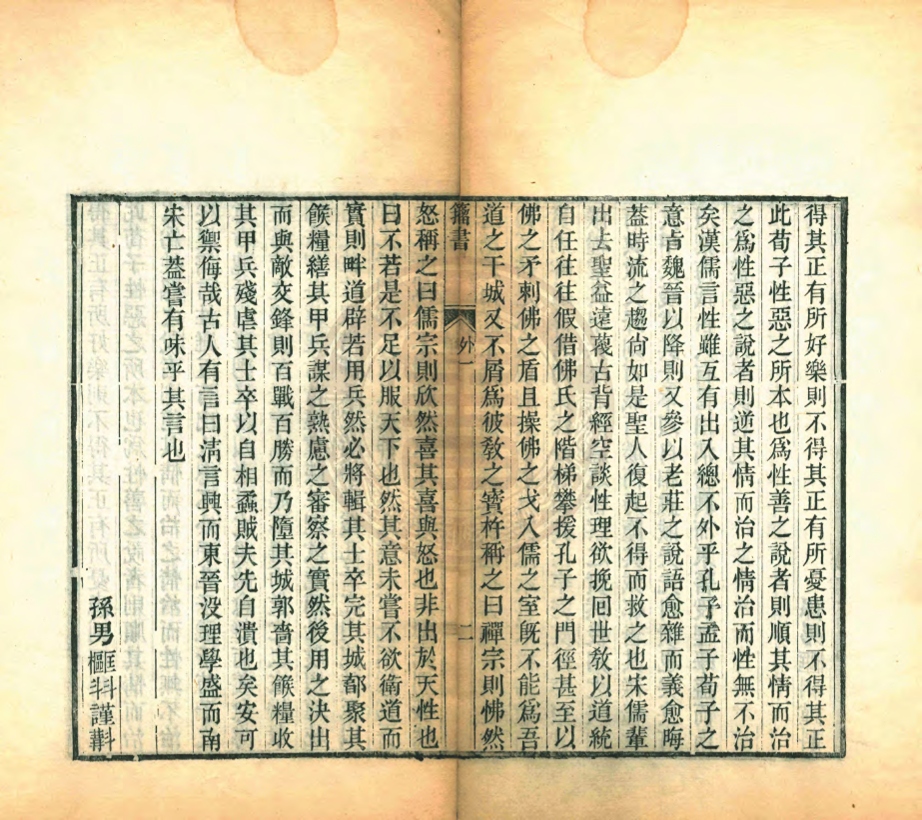 得其正有所好樂則不得其正有所憂患則不得其正
此荀子性惡之所本也爲性善之說者則順其情而治
之爲性惡之說者則逆其情而治之情治而性無不治
矣漢儒言性雖互有出入總不外乎孔子孟子荀子之
意㫖魏晉以降則又參以老莊之說語愈雜而義愈晦
葢時流之趨尙如是聖人復起不得而救之也宋儒輩
出去聖益遠蔑古背經空談性理欲挽回世敎以道統
自任往往假借佛氏之階梯攀援孔子之門徑甚至以
佛之矛刺佛之盾且操佛之戈入儒之室旣不能爲吾
道之干城又不屑爲彼敎之寶杵稱之曰禪宗則怫然
籒書 外一 二
怒稱之曰儒宗則欣然喜其喜與怒也非出於天性也
曰不若是不足以服天下也然其意未嘗不欲衛道而
實則畔道辟若用兵然必將輯其士卒完其城郭聚其
餱糧繕其甲兵謀之熟慮之審察之實然後用之決出
而與敵交鋒則百戰百勝而乃墮其城郭嗇其餱糧收
其甲兵殘虐其士卒以自相蟊賊夫先自潰也矣安可
以禦侮哉古人有言曰淸言興而東晉沒理學盛而南
宋亡葢嘗有味乎其言也
孫男 謹斠